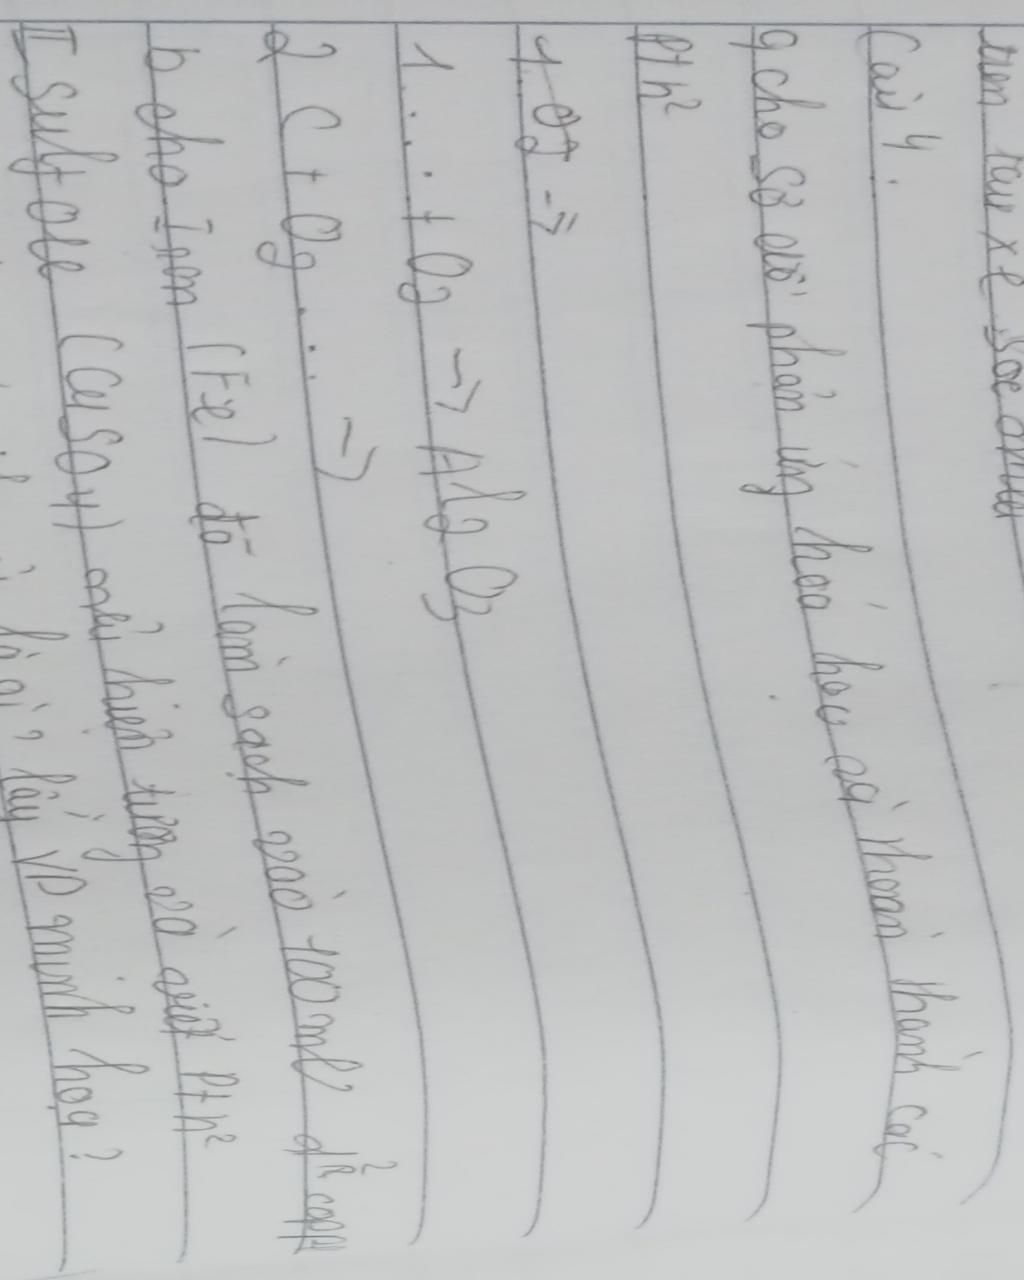 Câu 4.
a cho sơ đồ phản ứng hóa học và hoàn thành các
Pth²
1 O2 →
1 ... + O2 → Al2O3
2 C + O2 ... →
b cho Iron (Fe) đã làm sạch vào 100ml d² copp
II Sulfate (CuSO4) nêu hiện tượng và viết Pth²
là gì, lấy VD minh họa?